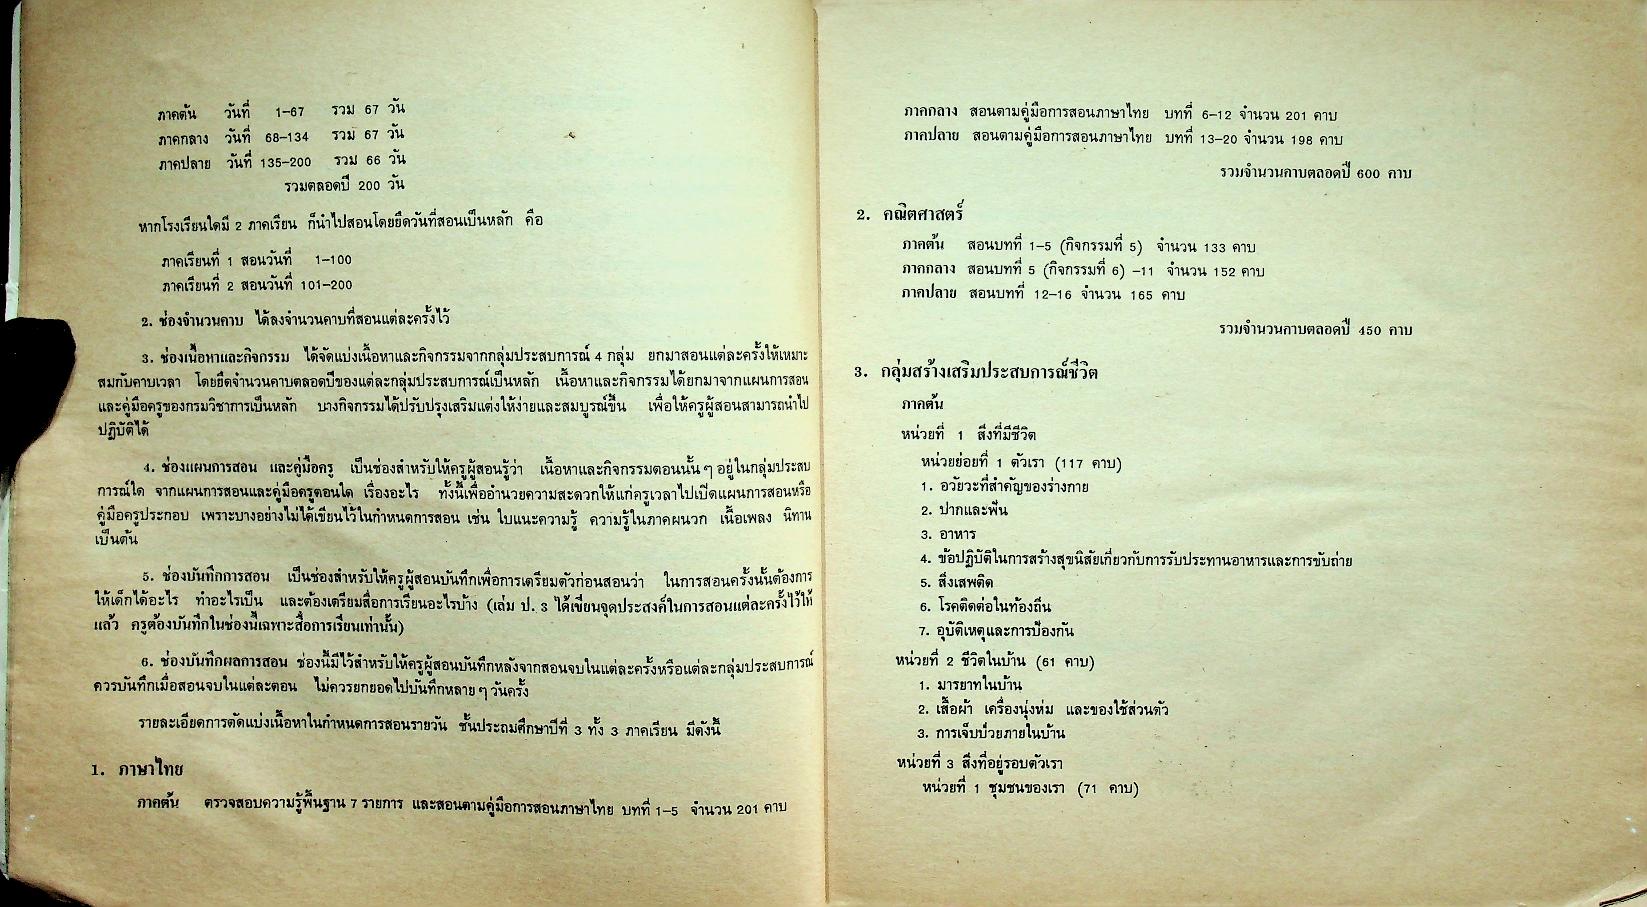 ภาคต้น วันที่ 1–67 รวม 67 วัน
ภาคกลาง วันที่ 68–134 รวม 67 วัน
ภาคปลาย วันที่ 135–200 รวม 66 วัน
รวมตลอดปี 200 วัน
หากโรงเรียนใดมี 2 ภาคเรียน ก็นำไปสอนโดยยึดวันที่สอนเป็นหลัก คือ
ภาคเรียนที่ 1 สอนวันที่ 1–100
ภาคเรียนที่ 2 สอนวันที่ 101–200
2. ช่องจำนวนคาบ ได้ลงจำนวนคาบที่สอนแต่ละครั้งไว้
3. ช่องเนื้อหาและกิจกรรม ได้จัดแบ่งเนื้อหาและกิจกรรมจากกลุ่มประสบการณ์ 4 กลุ่ม ยกมาสอนแต่ละครั้งให้เหมาะ
สมกับคาบเวลา โดยยึดจำนวนคาบตลอดปีของแต่ละกลุ่มประสบการณ์เป็นหลัก เนื้อหาและกิจกรรมได้ยกมาจากแผนการสอน
และคู่มือครูของกรมวิชาการเป็นหลัก บางกิจกรรมได้ปรับปรุงเสริมแต่งให้ง่ายและสมบูรณ์ขึ้น เพื่อให้ครูผู้สอนสามารถนำไป
ปฏิบัติได้
4. ช่องแผนการสอน และคู่มือครู เป็นช่องสำหรับให้ครูผู้สอนรู้ว่า เนื้อหาและกิจกรรมตอนนั้น ๆ อยู่ในกลุ่มประสบ
การณ์ใด จากแผนการสอนและคู่มือครูตอนใด เรื่องอะไร ทั้งนี้เพื่ออำนวยความสะดวกให้แก่ครูเวลาไปเปิดแผนการสอนหรือ
คู่มือครูประกอบ เพราะบางอย่างไม่ได้เขียนไว้ในกำหนดการสอน เช่น ใบแนะความรู้ ความรู้ในภาคผนวก เนื้อเพลง นิทาน
เป็นต้น
5. ช่องบันทึกการสอน เป็นช่องสำหรับให้ครูผู้สอนบันทึกเพื่อการเตรียมตัวก่อนสอนว่า ในการสอนครั้งนั้นต้องการ
ให้เด็กได้อะไร ทำอะไรเป็น และต้องเตรียมสื่อการเรียนอะไรบ้าง (เล่ม ป. 3 ได้เขียนจุดประสงค์ในการสอนแต่ละครั้งไว้ให้
แล้ว ครูต้องบันทึกในช่องนี้เฉพาะสื่อการเรียนเท่านั้น)
6. ช่องบันทึกผลการสอน ช่องนี้มีไว้สำหรับให้ครูผู้สอนบันทึกหลังจากสอนจบในแต่ละครั้งหรือแต่ละกลุ่มประสบการณ์
ควรบันทึกเมื่อสอนจบในแต่ละตอน ไม่ควรยกยอดไปบันทึกหลาย ๆ วันครั้ง
รายละเอียดการตัดแบ่งเนื้อหาในกำหนดการสอนรายวัน ชั้นประถมศึกษาปีที่ 3 ทั้ง 3 ภาคเรียน มีดังนี้
1. ภาษาไทย
ภาคต้น ตรวจสอบความรู้พื้นฐาน 7 รายการ และสอนตามคู่มือการสอนภาษาไทย บทที่ 1–5 จำนวน 201 คาบ
ภาคกลาง สอนตามคู่มือการสอนภาษาไทย บทที่ 6–12 จำนวน 201 คาบ
ภาคปลาย สอนตามคู่มือการสอนภาษาไทย บทที่ 13–20 จำนวน 198 คาบ
รวมจำนวนคาบตลอดปี 600 คาบ
2. คณิตศาสตร์
ภาคต้น สอนบทที่ 1–5 (กิจกรรมที่ 5) จำนวน 133 คาบ
ภาคกลาง สอนบทที่ 5 (กิจกรรมที่ 6) –11 จำนวน 152 คาบ
ภาคปลาย สอนบทที่ 12–16 จำนวน 165 คาบ
รวมจำนวนคาบตลอดปี 450 คาบ
3. กลุ่มสร้างเสริมประสบการณ์ชีวิต
ภาคต้น
หน่วยที่ 1 สิ่งที่มีชีวิต
หน่วยย่อยที่ 1 ตัวเรา (117 คาบ)
1. อวัยวะที่สำคัญของร่างกาย
2. ปากและฟัน
3. อาหาร
4. ข้อปฏิบัติในการสร้างสุขนิสัยเกี่ยวกับการรับประทานอาหารและการขับถ่าย
5. สิ่งเสพติด
6. โรคติดต่อในท้องถิ่น
7. อุบัติเหตุและการป้องกัน
หน่วยที่ 2 ชีวิตในบ้าน (61 คาบ)
1. มารยาทในบ้าน
2. เสื้อผ้า เครื่องนุ่งห่ม และของใช้ส่วนตัว
3. การเจ็บป่วยภายในบ้าน
หน่วยที่ 3 สิ่งที่อยู่รอบตัวเรา
หน่วยที่ 1 ชุมชนของเรา (71 คาบ)